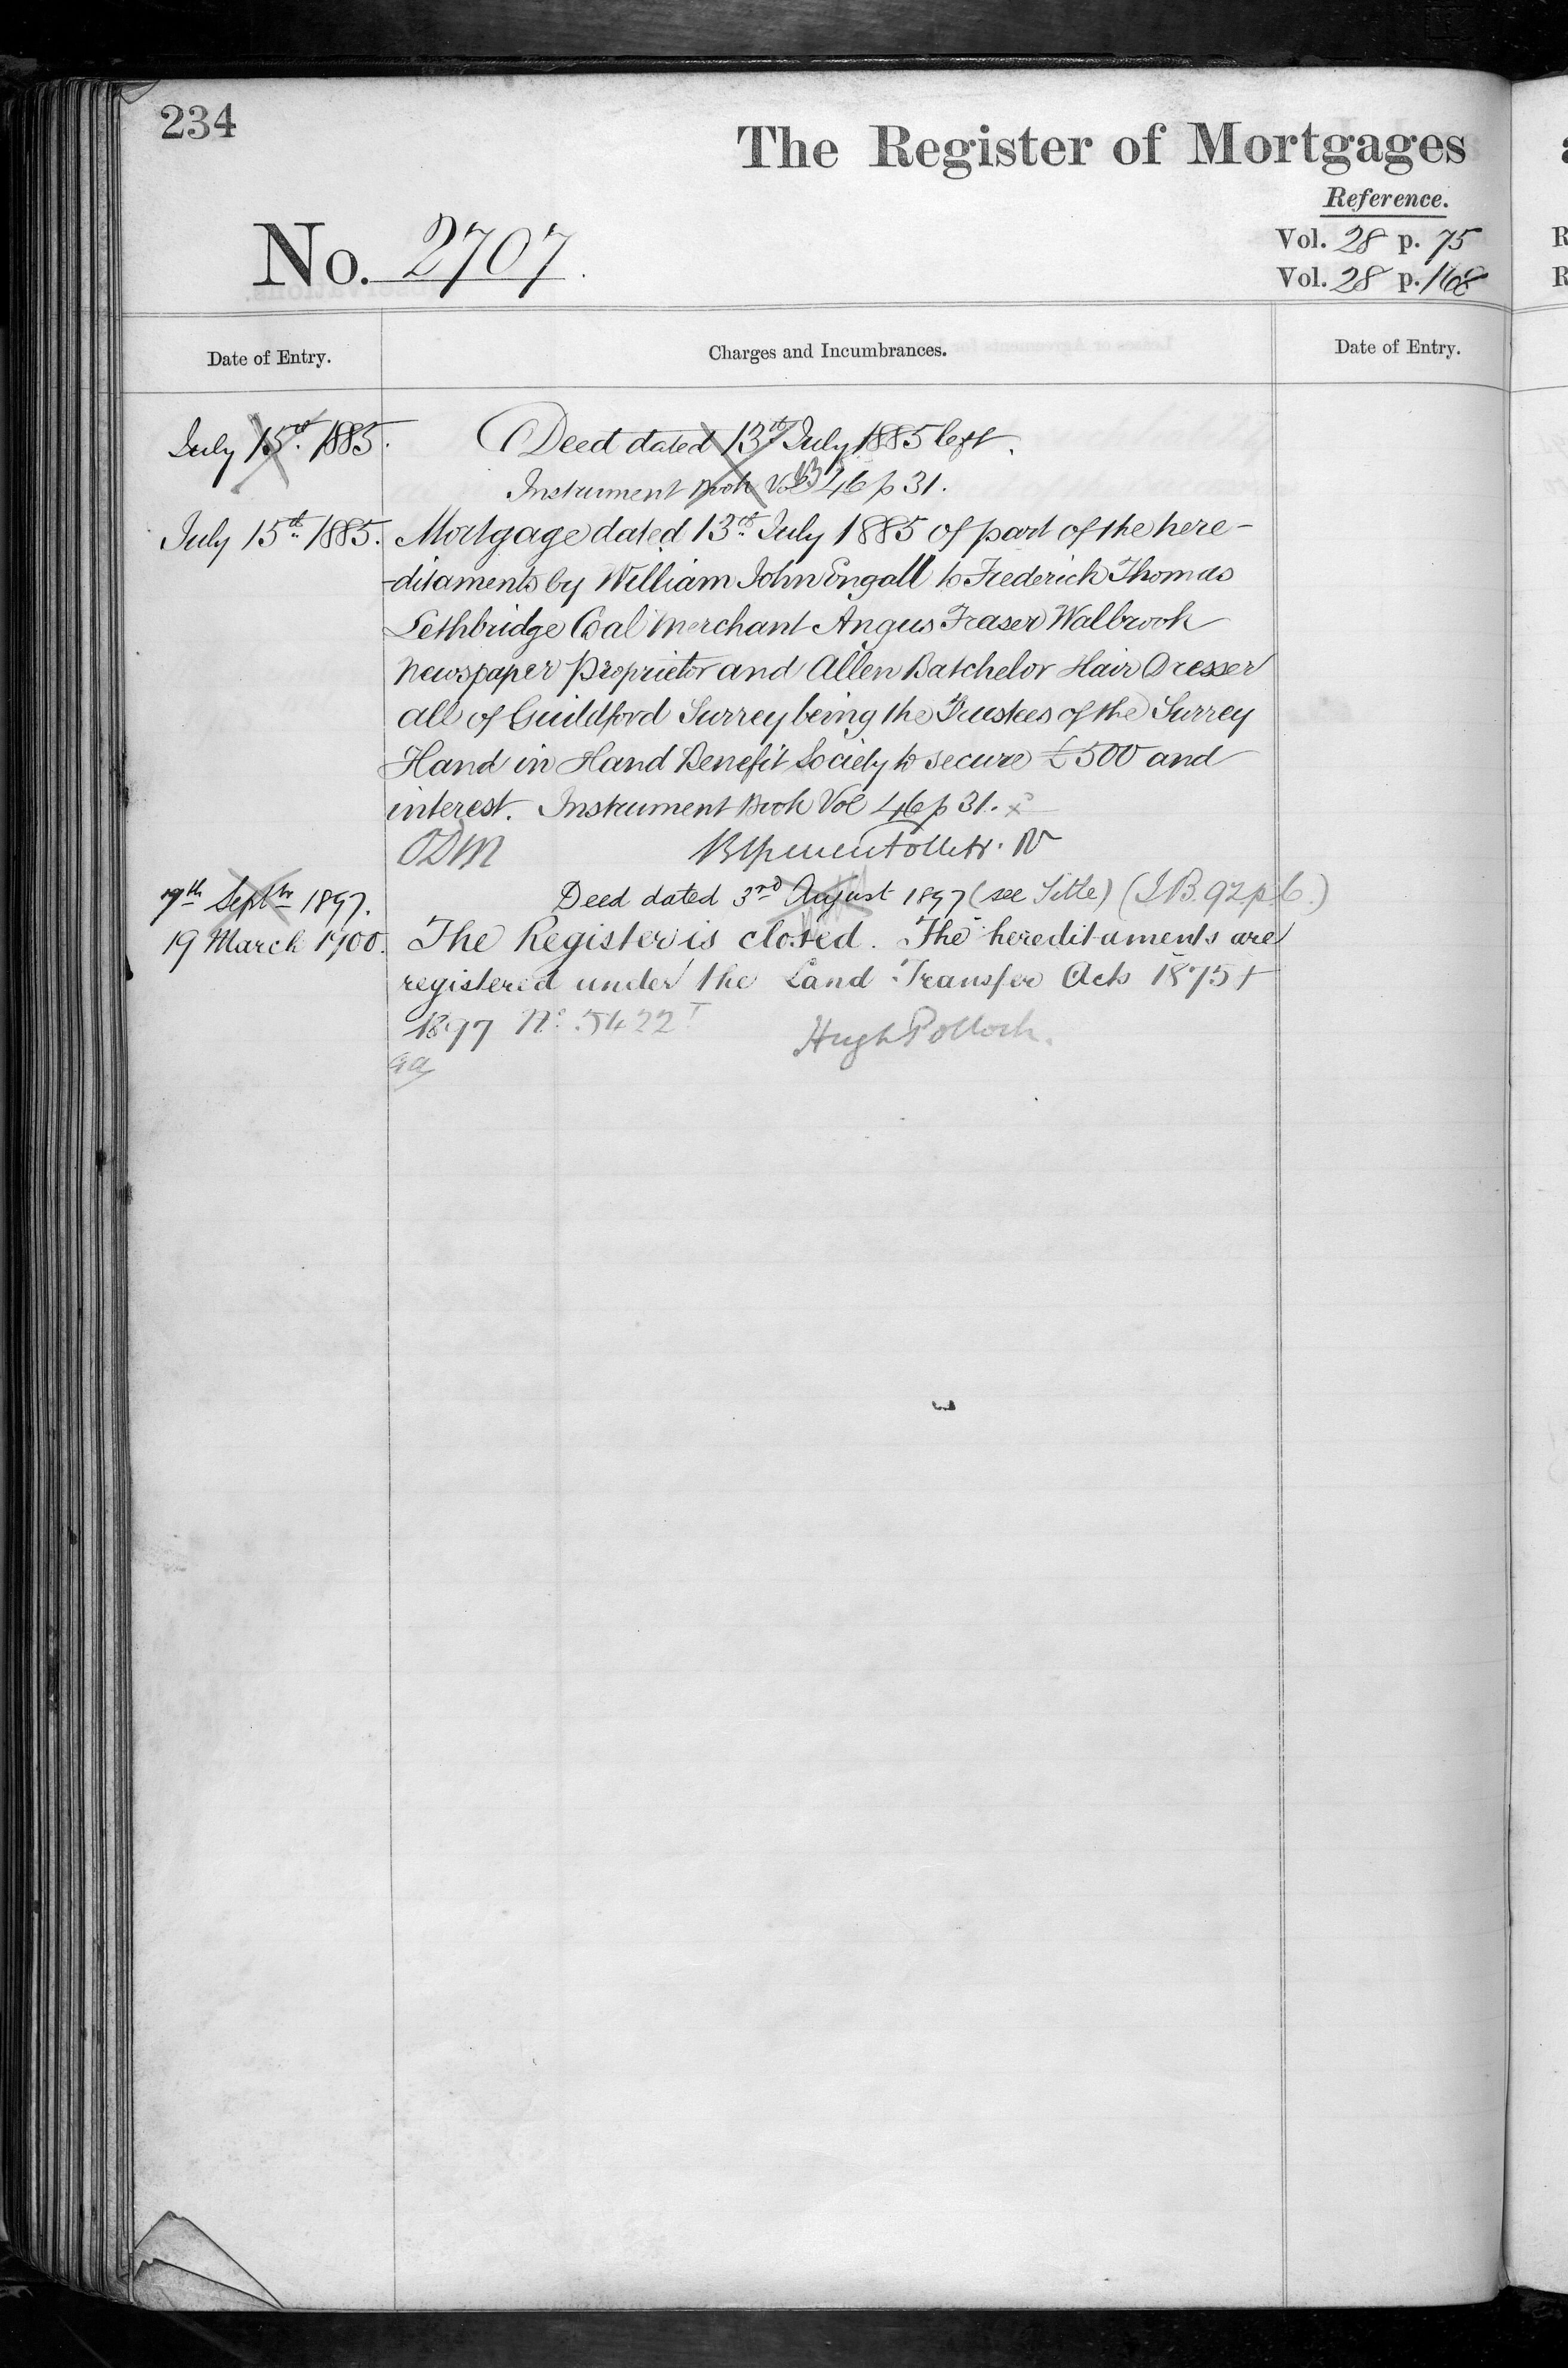 234
The Register of Mortgages
Reference.
No. 2707.
Vol. 28 p. 75
Vol. 28 p. 168
Date of Entry.
Charges and Incumbrances.
Date of Entry.
July 15th 1885. Deed dated 13th July 1885 left.
Instrument Book Vol 46 p 31.
July 15th 1885. Mortgage dated 13th July 1885 of part of the here-
-ditaments by William John Engall to Frederick Thomas
Lethbridge Coal Merchant Angus Fraser Walbrook
Newspaper Proprietor and Allen Batchelor Hair Dresser
all of Guildford Surrey being the Trustees of the Surrey
Hand in Hand Benefit Society to secure £500 and
interest. Instrument Book Vol 46 p 31.
ODM
7th Septr 1897. Deed dated 3rd August 1897 (see Title) (I.B. 92 p. 6.)
19 March 1900. The Register is closed. The hereditaments are
registered under the Land Transfer Acts 1875 +
1897 No. 5422
Hugh Pollock.